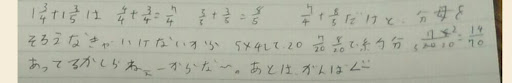 1 3/4 + 1 3/5 は 4/4 + 3/4 = 7/4 5/5 + 3/5 = 8/5 7/4 + 8/5 だけど、分母を
そろえなきゃいけないから 5×4して20 7/20 8/20 で
あってるかしらねぇーからな〜。あとはがんばく